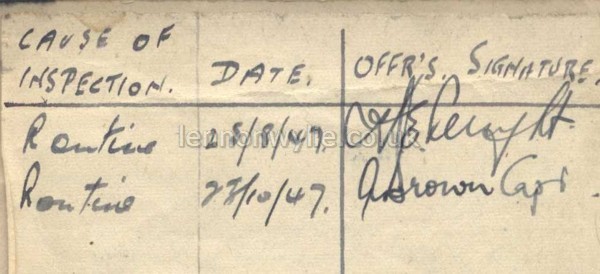 CAUSE OF
INSPECTION. DATE. OFFR'S. SIGNATURE.
Routine 28/8/47.
Routine 23/10/47. Brown Capt
lennonwylie.co.uk